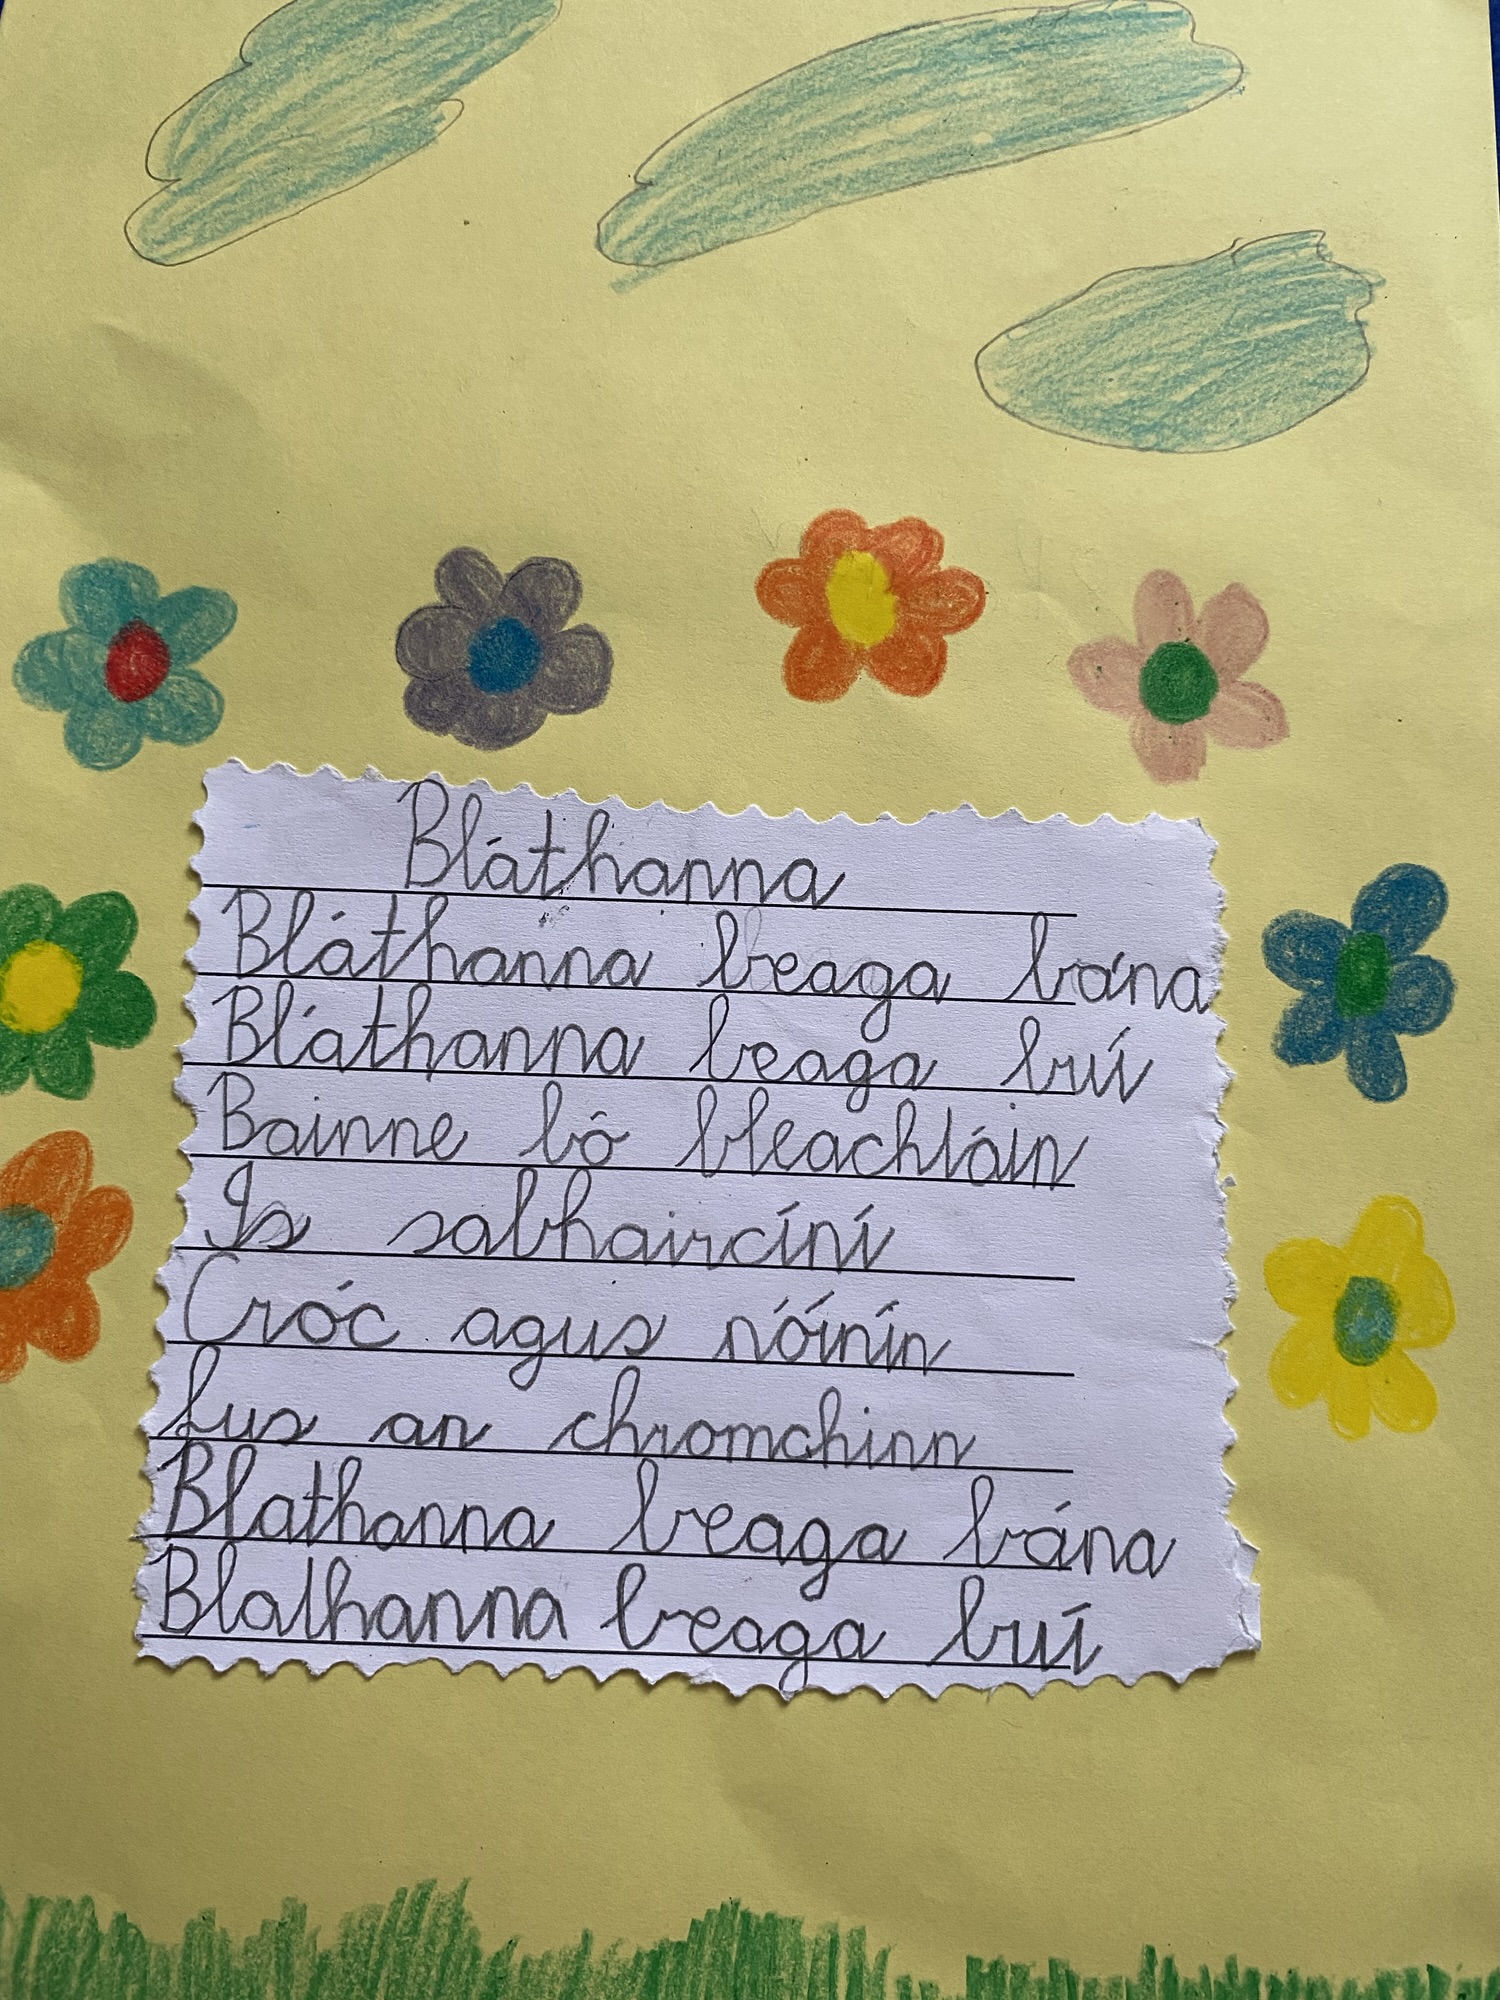 Bláthanna
Bláthanna beaga bána
Bláthanna beaga buí
Bainne bó bleachtáin
Is sabhaircíní
Cróc agus nóínín
Lus an chromchinn
Blathanna beaga bána
Blathanna beaga buí